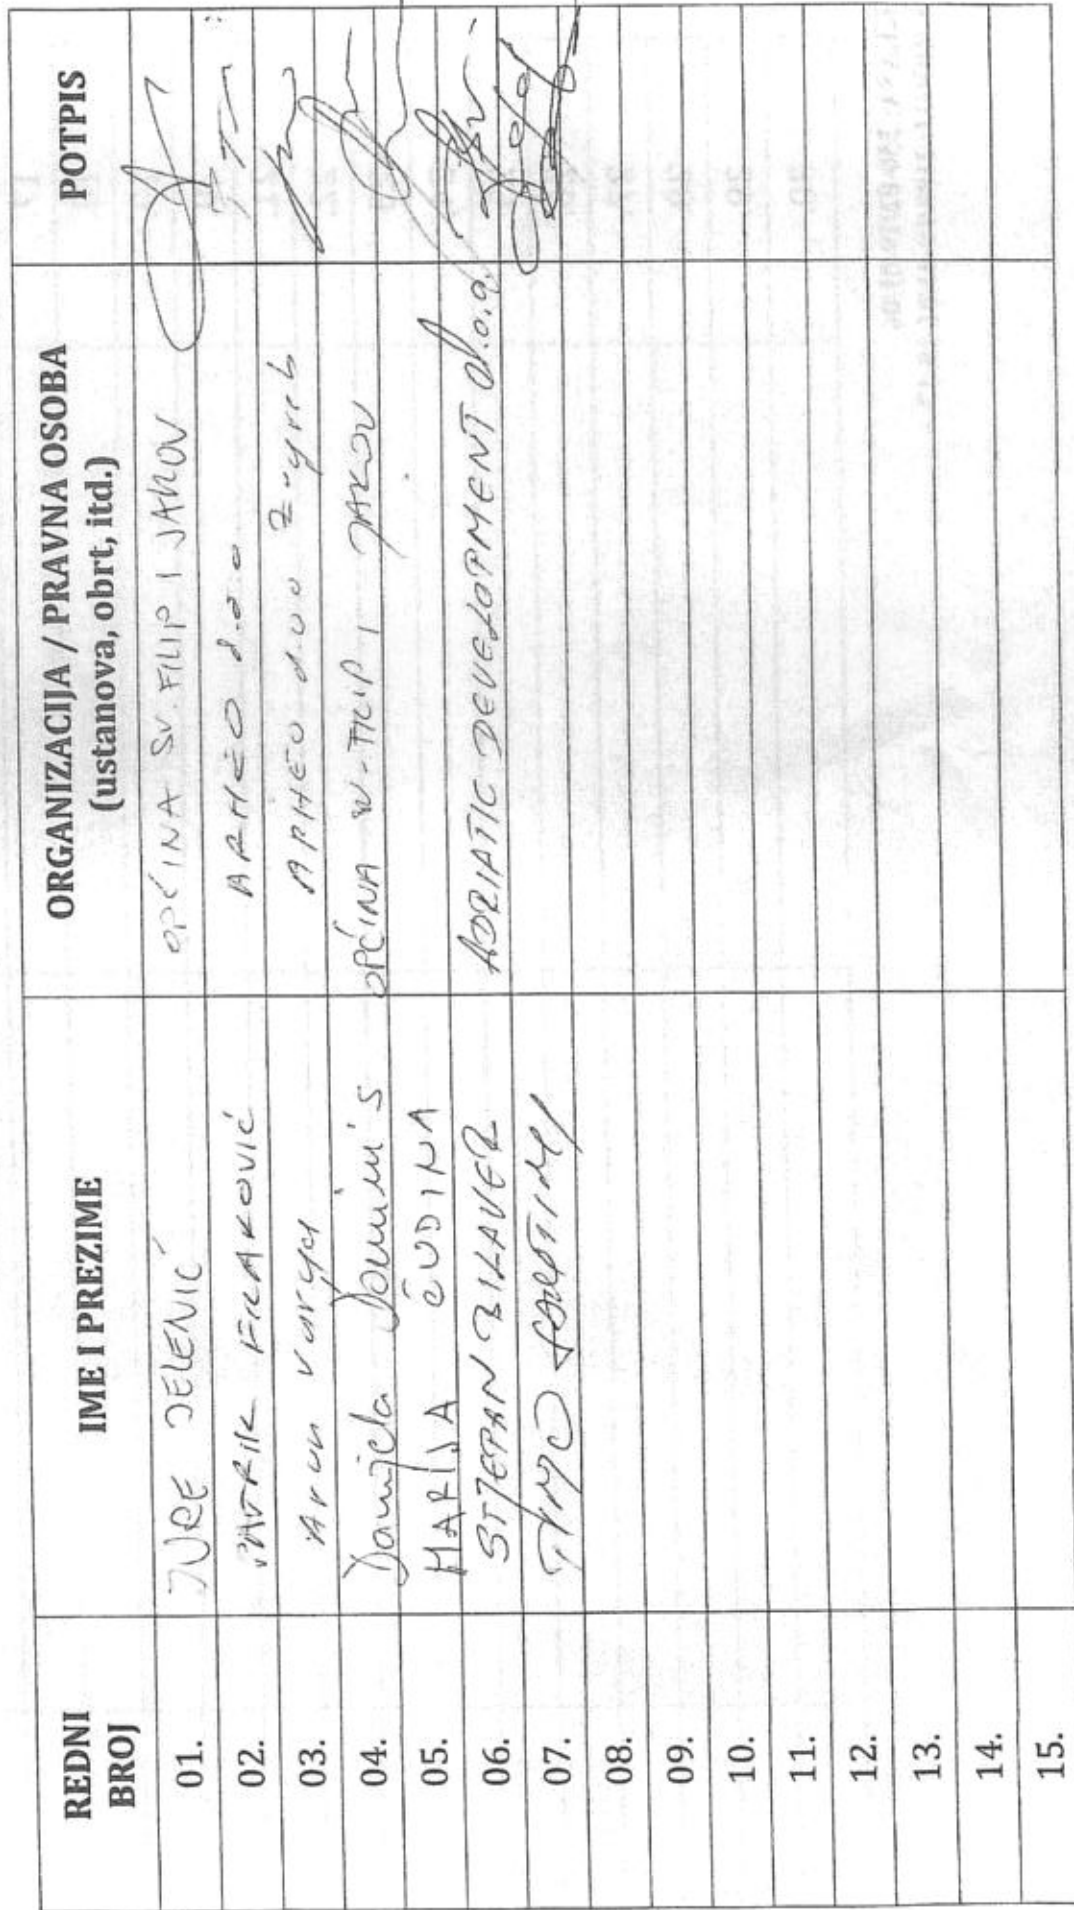 REDNI BROJ IME I PREZIME ORGANIZACIJA / PRAVNA OSOBA (ustanova, obrt, itd.) POTPIS
01. JURE JELENIĆ OPĆINA SV. FILIP I JAKOV
02. PATRIK ARHEO d.o.o
03. Varga ARHEO d.o.o Zagreb
04. Danijela Dominis OPĆINA SV. FILIP I JAKOV
05. MARIJA ČUDINA
06. STJEPAN BILAVER ADRIATIC DEVELOPMENT d.o.o.
07.
08.
09.
10.
11.
12.
13.
14.
15.